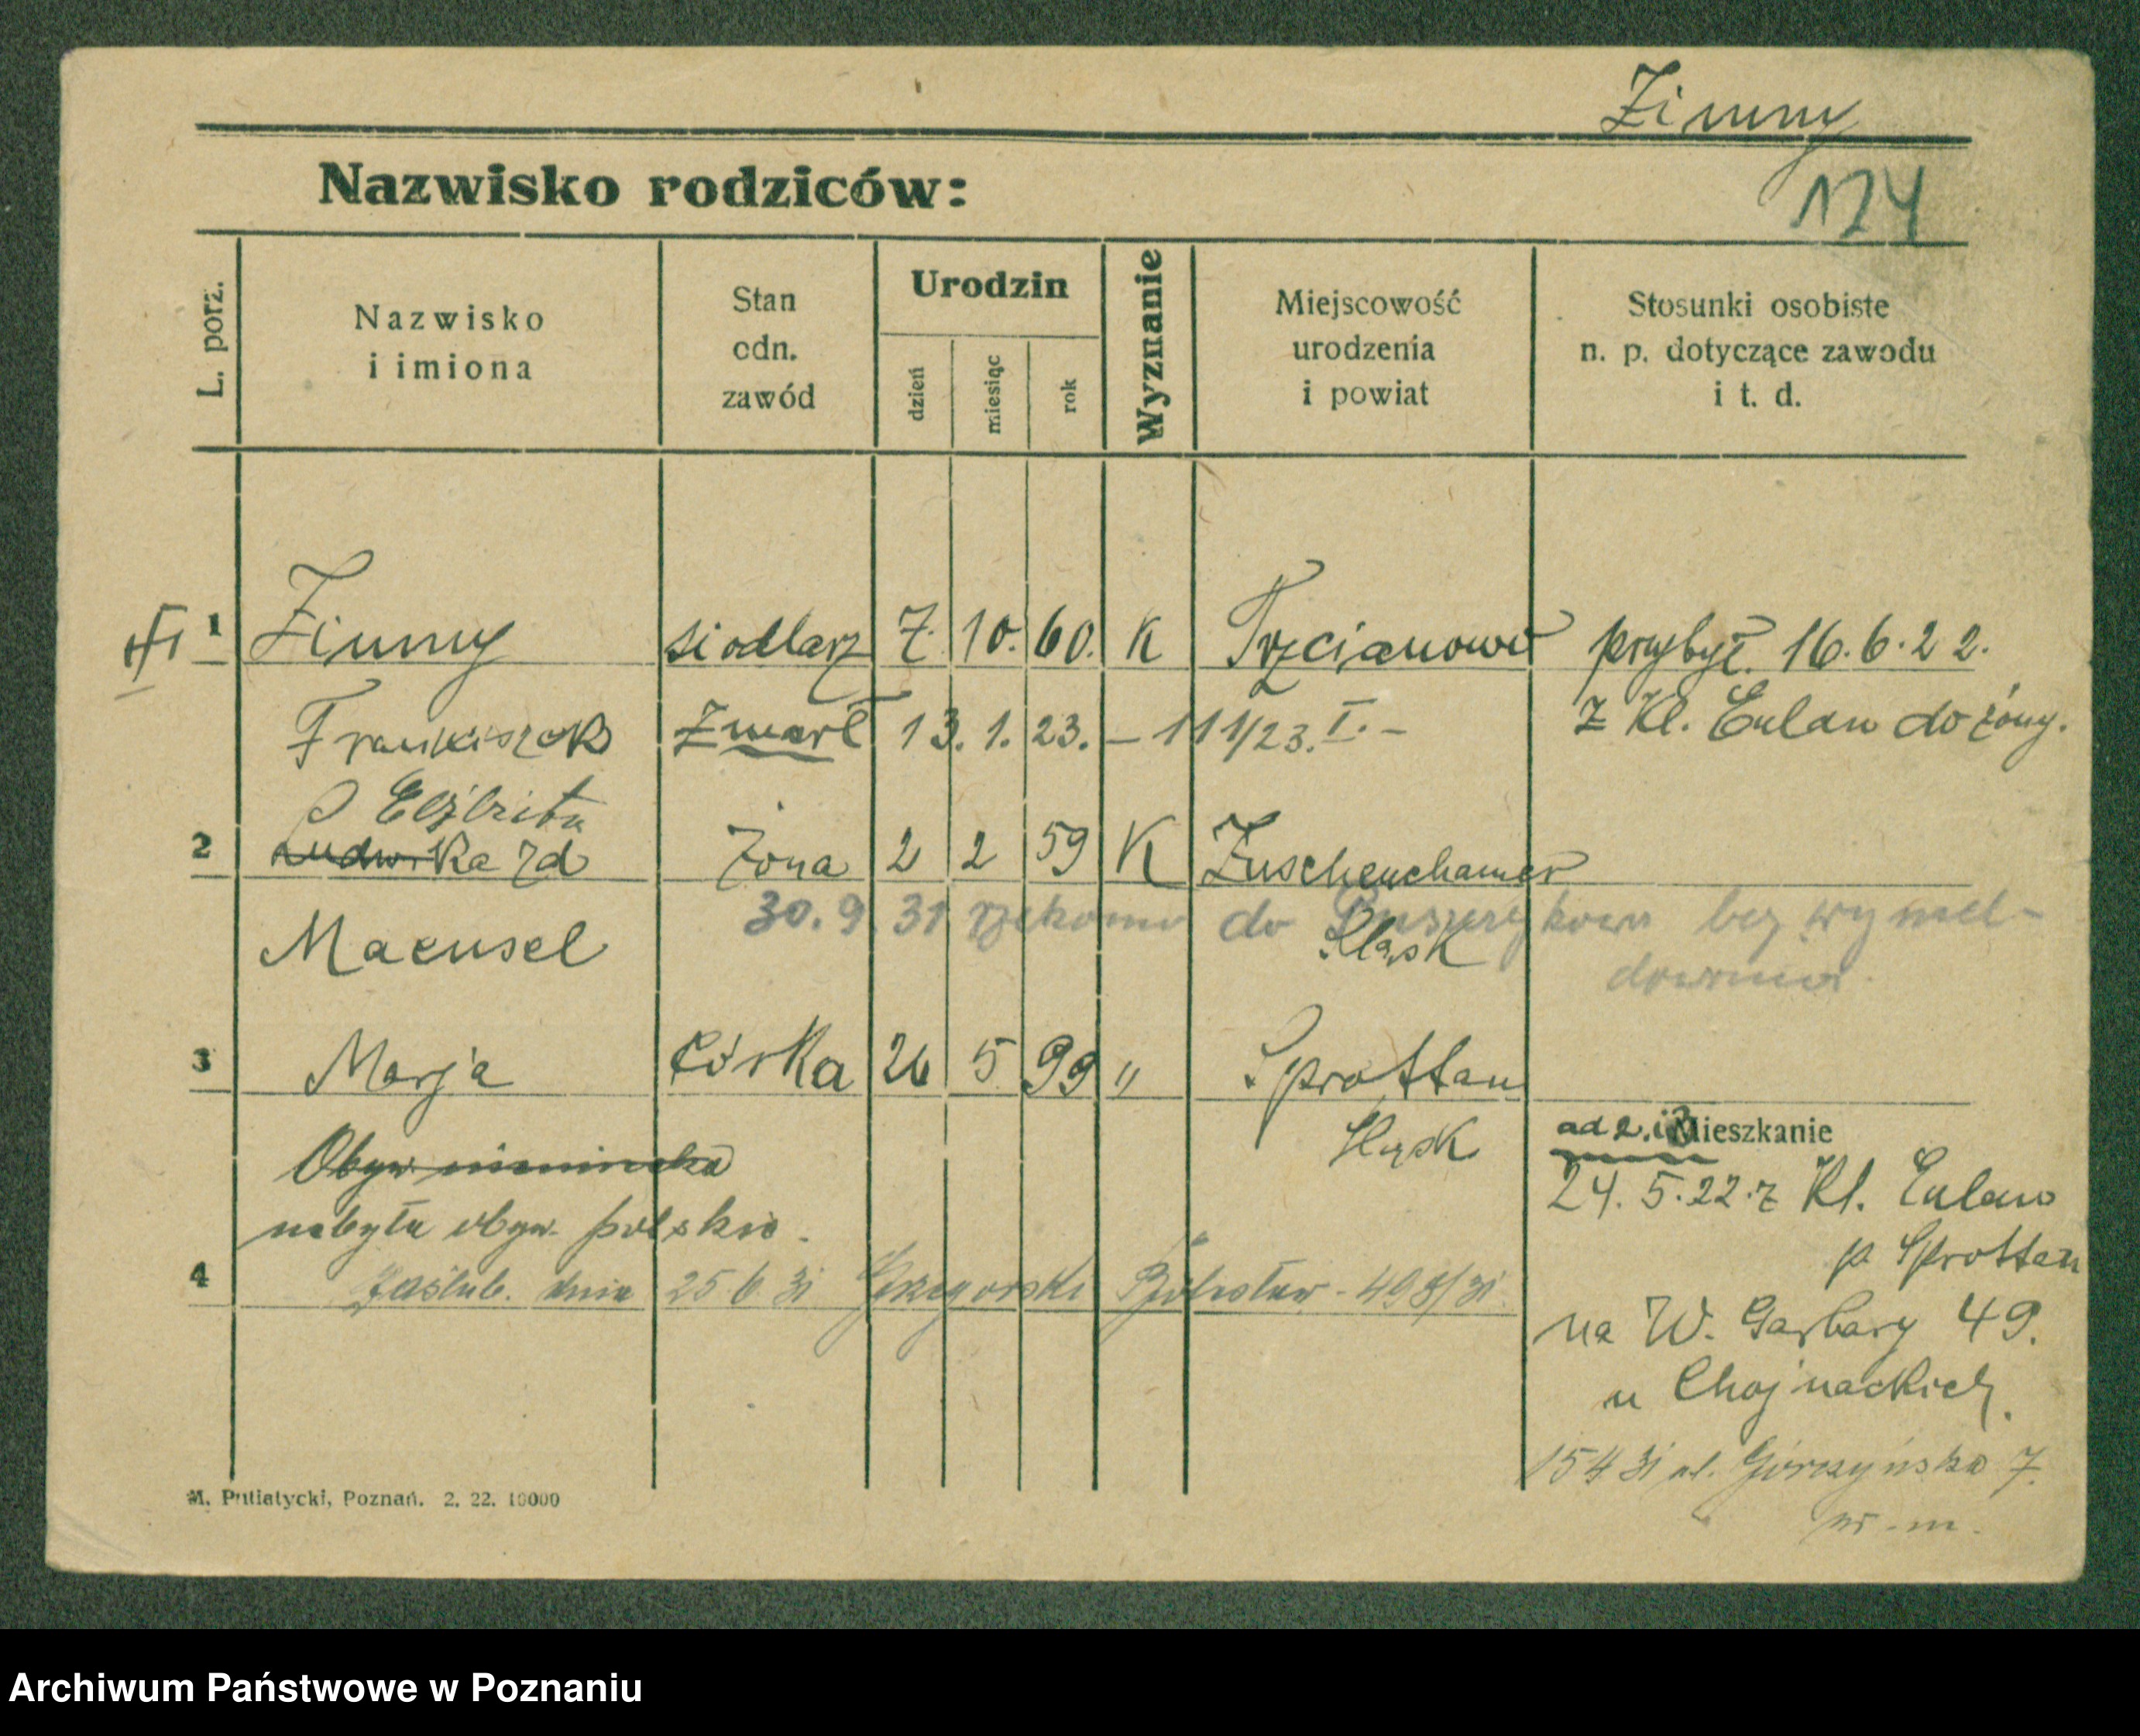 Zimny
174
Nazwisko rodziców:
L. porz.
Nazwisko
i imiona
Stan
odn.
zawód
Urodzin
dzień
miesiąc
rok
Wyznanie
Miejscowość
urodzenia
i powiat
Stosunki osobiste
n. p. dotyczące zawodu
i t. d.
1 Zimny siodlarz 7. 10. 60. K Trzcianowo przybył. 16.6.22.
Franciszek Zmarł 13. 1. 23. – 111/23. I. –
z Kl. Eulau do żony.
Elżbieta
2 Ludwika zd żona 2 2 59 K Zuschenhamer
30.9.31 rzekomo do bez wymel-
dowania
Maensel Śląsk
3 Marja córka 26 5 99 " Sprottau
Śląsk
ad 2. i 3 Mieszkanie
Obyw. niemiecka
nabyła obyw. polskie.
24. 5. 22. z Kl. Eulau
p Sprottau
4 zaślub. dnia 25 6 31 Bolesław - 498/31
na W. Garbary 49.
u Chojnackich.
15 4 31 ul. Górczyńska 7.
M. Putiatycki, Poznań. 2. 22. 10000
Archiwum Państwowe w Poznaniu